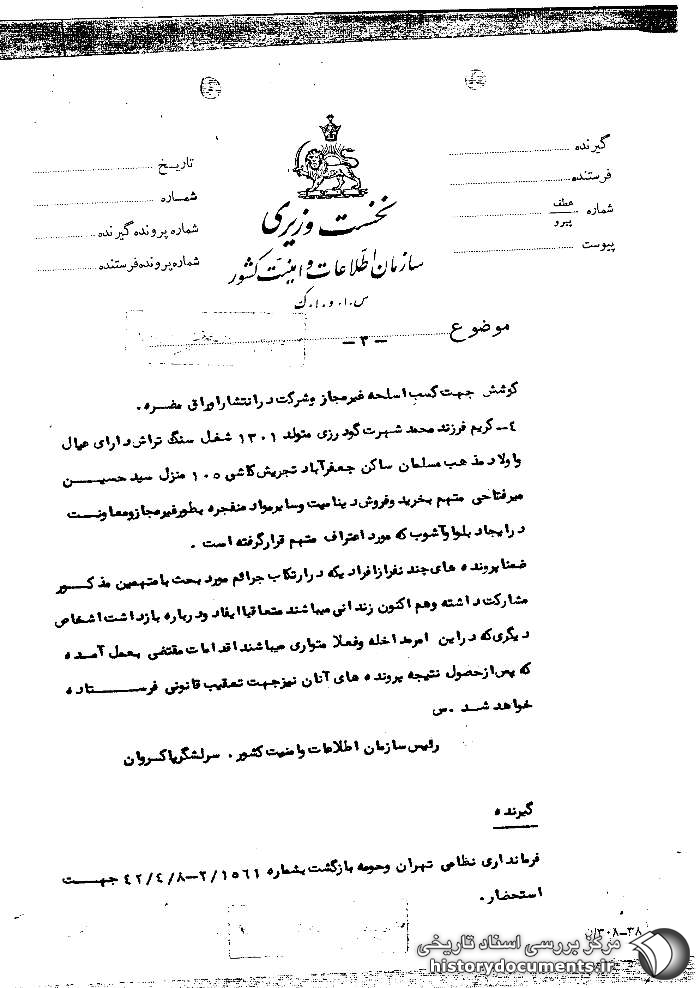 گیرنده
فرستنده
شماره عطف
پیرو
پیوست
نخست وزیری
سازمان اطلاعات و امنیت کشور
س.ا.و.ا.ک
تاریخ
شماره
شماره پرونده گیرنده
شماره پرونده فرستنده
موضوع
-۳-
کوشش جهت کسب اسلحه غیرمجاز وشرکت در انتشار اوراق مضره.
٤- کریم فرزند محمد شهرت گودرزی متولد ۱۳۰۱ شغل سنگ تراش دارای عیال
واولاد مذهب مسلمان ساکن جعفرآباد تجریش کاشی ۱۰۵ منزل سید حسین
میرفتاحی متهم بخرید وفروش دینامیت وسایر مواد منفجره بطور غیرمجاز ومعاونت
در ایجاد بلوا وآشوب که مورد اعتراف متهم قرار گرفته است .
ضمنا پرونده های چند نفر از افرادیکه در ارتکاب جرائم مورد بحث با متهمین مذکور
مشارکت داشته وهم اکنون زندانی میباشند متعاقبا ایفاد ودرباره بازداشت اشخاص
دیگری که در این امر مداخله وفعلا متواری میباشند اقدامات مقتضی بعمل آمده
که پس از حصول نتیجه پرونده های آنان نیز جهت تعقیب قانونی فرستاده
خواهد شد .س
رئیس سازمان اطلاعات وامنیت کشور. سرلشگر پاکروان
گیرنده
فرمانداری نظامی تهران وحومه بازگشت بشماره ۲/۱٥٦۱-٤۲/٤/۸ جهت
استحضار.
مرکز بررسی اسناد تاریخی
historydocuments.ir